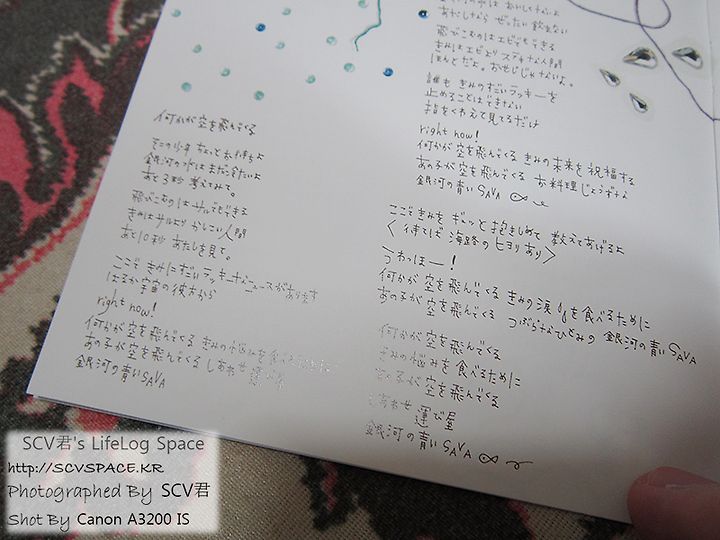 何かが空を飛んでくる
そこの少年 ちょっとお待ちよ
銀河の水はまだ冷たいよ
あと3秒 考えてみて。
飛びこむのはサルでもできる
きみはサルより かしこい人間
あと10秒 あたしを見て。
ここで きみにすごいラッキーなニュースがあります
はるか宇宙の彼方から
right now!
何かが空を飛んでくる きみの悩みを食べるために
あの子が空を飛んでくる しあわせ運び屋
銀河の青いSAVA
銀河の水は おいしくないよ
あたしなら ぜったい飲まない
飛びこむのはエビでもできる
きみはエビより ステキな人間
ほんとだよ。おせじじゃないよ。
誰も きみのすごいラッキーを
止めることはできない
指をくわえて見てるだけ
right now!
何かが空を飛んでくる きみの未来を祝福する
あの子が空を飛んでくる お料理じょうずな
銀河の青い SAVA
ここできみを ギュッと抱きしめて 教えてあげるよ
〈待てば 海路のヒヨリあり〉
うわっほー!
何かが空を飛んでくる きみの涙を食べるために
あの子が空を飛んでくる つぶらなひとみの 銀河の青い SAVA
何かが空を飛んでくる
きみの悩みを食べるために
あの子が空を飛んでくる
しあわせ 運び屋
銀河の青い SAVA
SCV君's LifeLog Space
http://SCVSPACE.KR
Photographed By SCV君
Shot By Canon A3200 IS